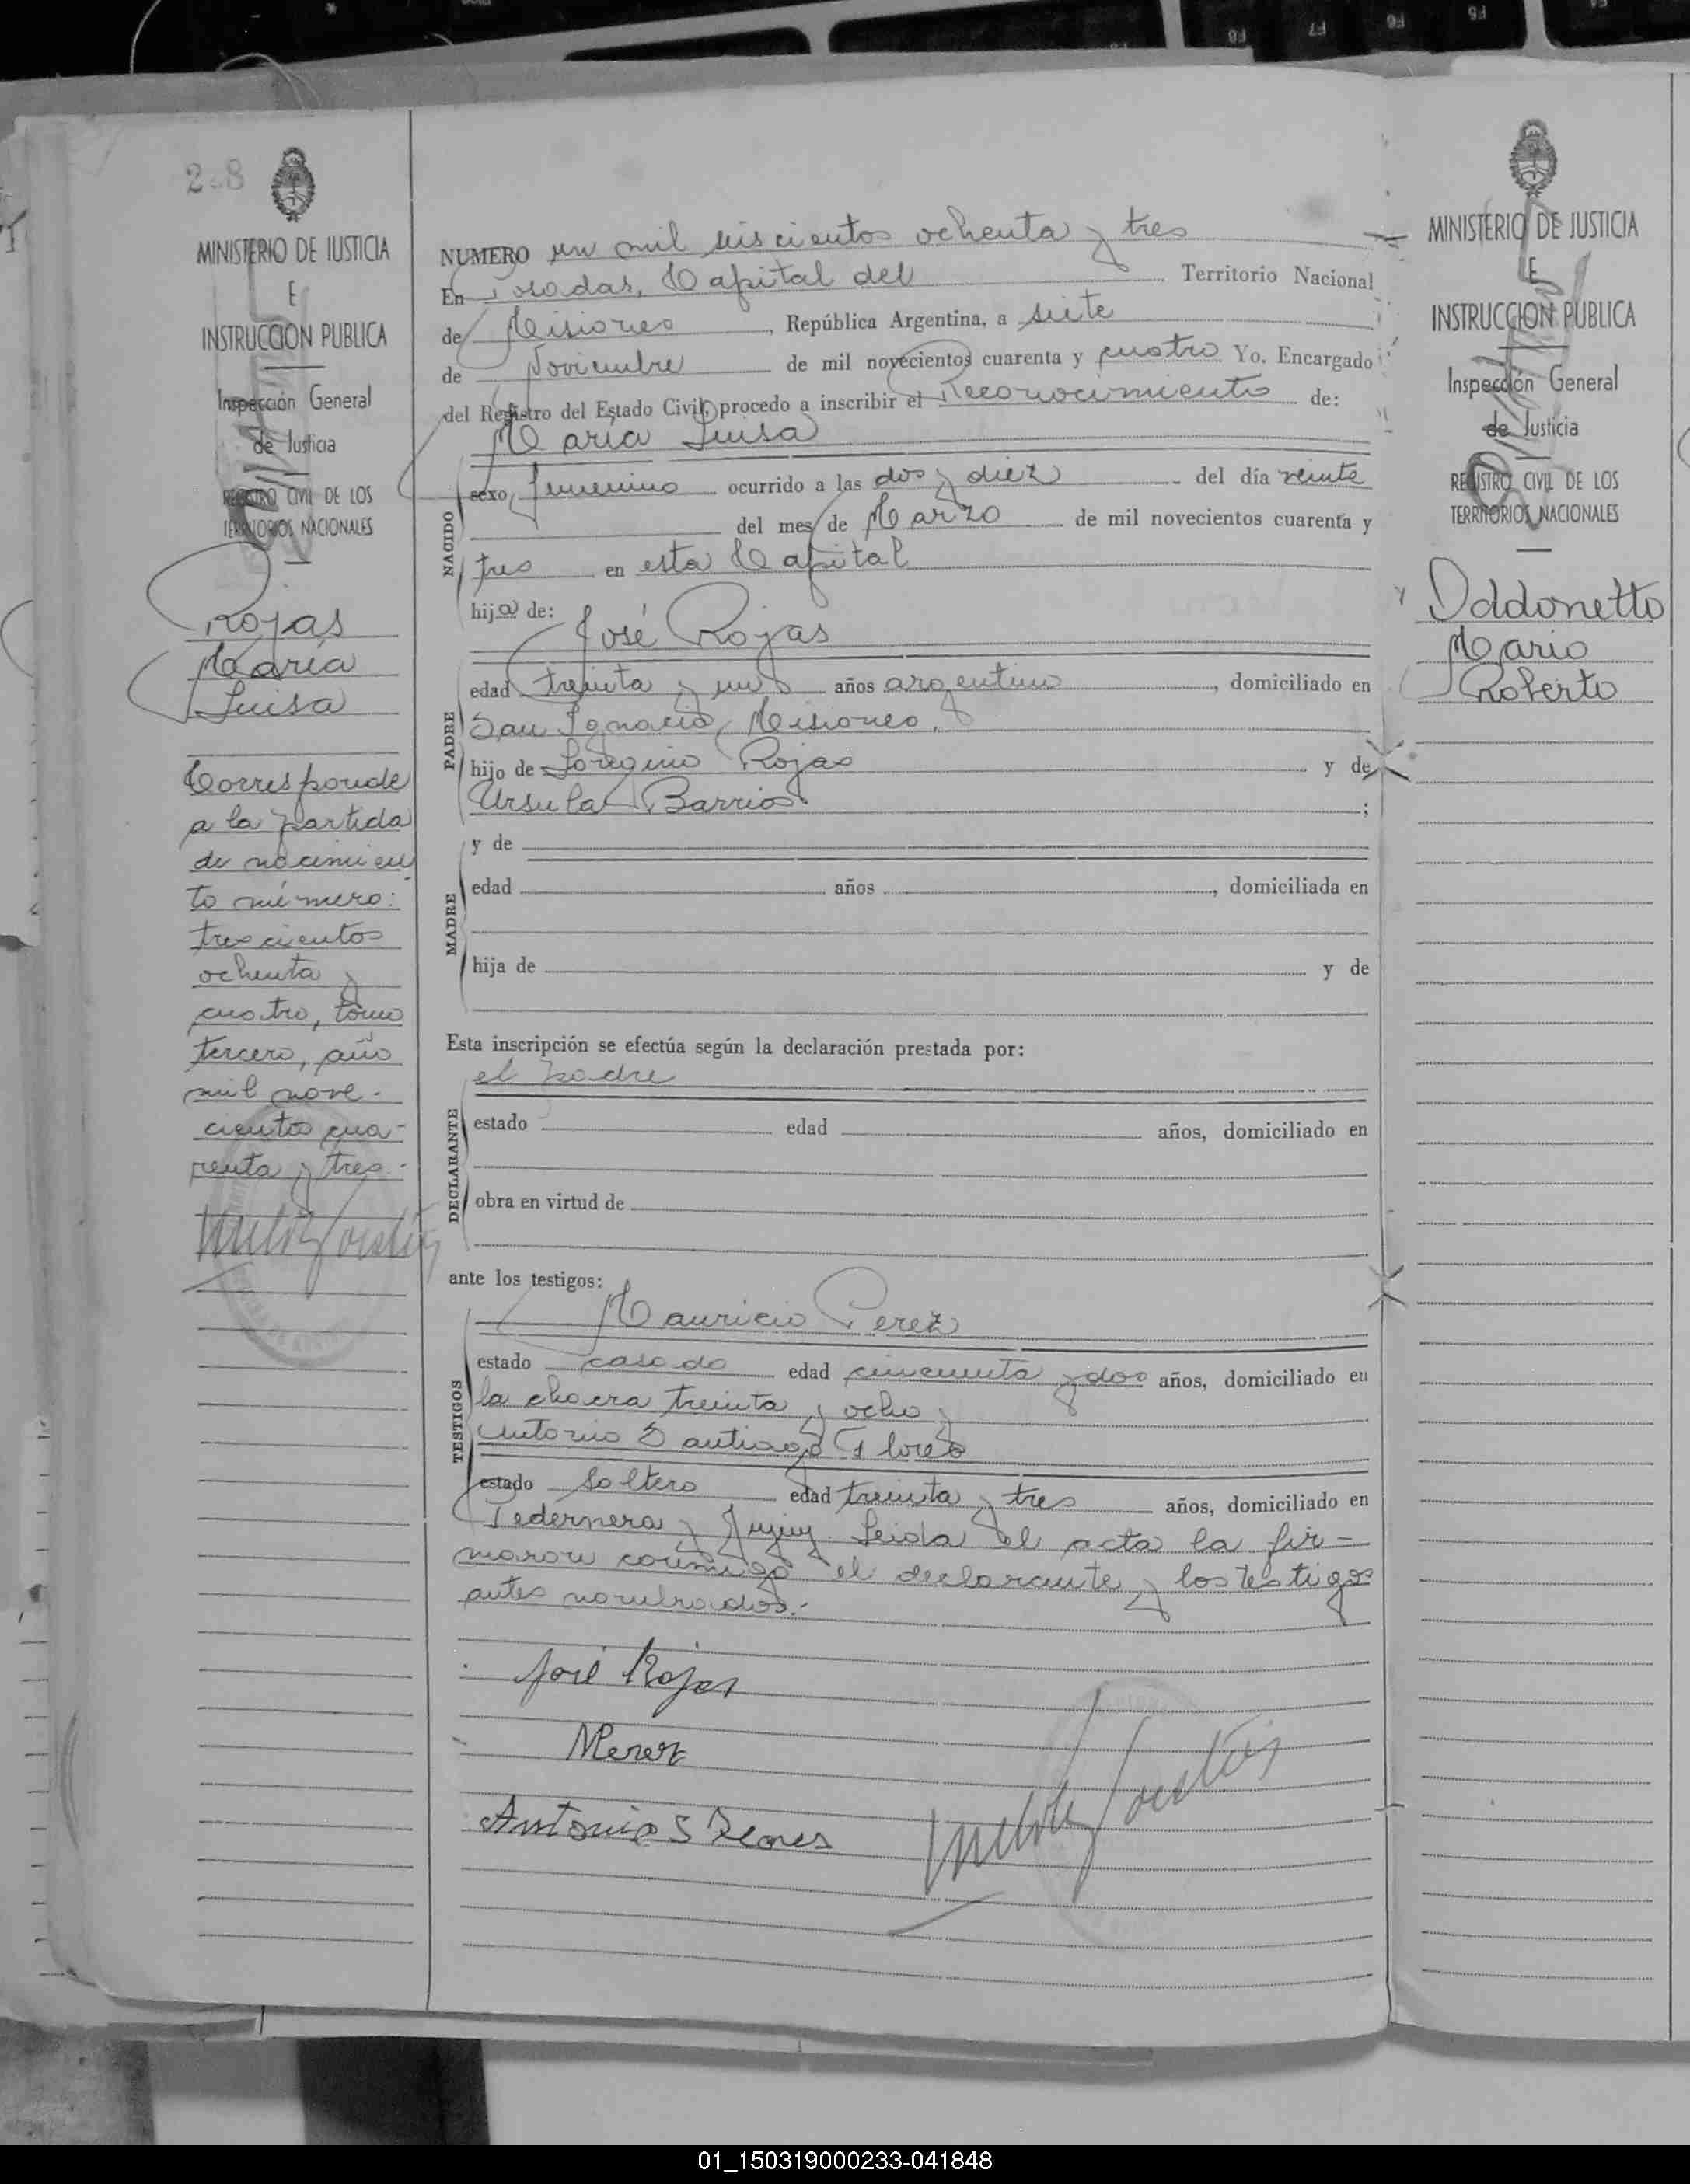 208
MINISTERIO DE JUSTICIA
E
INSTRUCCION PUBLICA
Inspección General
de Justicia
REGISTRO CIVIL DE LOS
TERRITORIOS NACIONALES
Rojas
María
Luisa
Corresponde
a la partida
de nacimien
to número:
trescientos
ochenta y
cuatro, tomo
tercero, año
mil nove-
cientos cua-
renta y tres.-
NUMERO un mil seiscientos ochenta y tres
En Posadas, Capital del Territorio Nacional
de Misiones, República Argentina, a siete
de Noviembre de mil novecientos cuarenta y cuatro Yo, Encargado
del Registro del Estado Civil, procedo a inscribir el Reconocimiento de:
María Luisa
NACIDO
sexo femenino ocurrido a las dos y diez del día veinte
del mes de Marzo de mil novecientos cuarenta y
tres en esta Capital
hija de: José Rojas
PADRE
edad treinta y un años argentino, domiciliado en
San Ignacio, Misiones,
hijo de Rojas y de
Ursula Barrios;
MADRE
y de
edad años, domiciliada en
hija de y de
Esta inscripción se efectúa según la declaración prestada por:
el padre
DECLARANTE
estado edad años, domiciliado en
obra en virtud de
ante los testigos:
Mauricio Perez
TESTIGOS
estado casado edad cincuenta y dos años, domiciliado en
la chacra treinta y ocho y
Antonio Santiago Flores
estado soltero edad treinta y tres años, domiciliado en
Pedernera y Jujuy. Leida el acta la fir-
maron conmigo el declarante y los testigos
antes nombrados.-
José Rojas
MPerez
Antonio S Flores
MINISTERIO DE JUSTICIA
E
INSTRUCCION PUBLICA
Inspección General
de Justicia
REGISTRO CIVIL DE LOS
TERRITORIOS NACIONALES
Oddonetto
Mario
Roberto
F8
F7
F6
F5
01_150319000233-041848